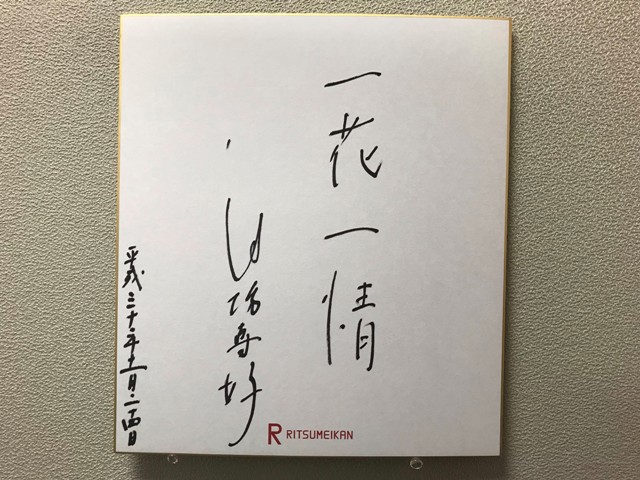 一花一情
池坊専好
平成三十年十一月二十四日
R RITSUMEIKAN